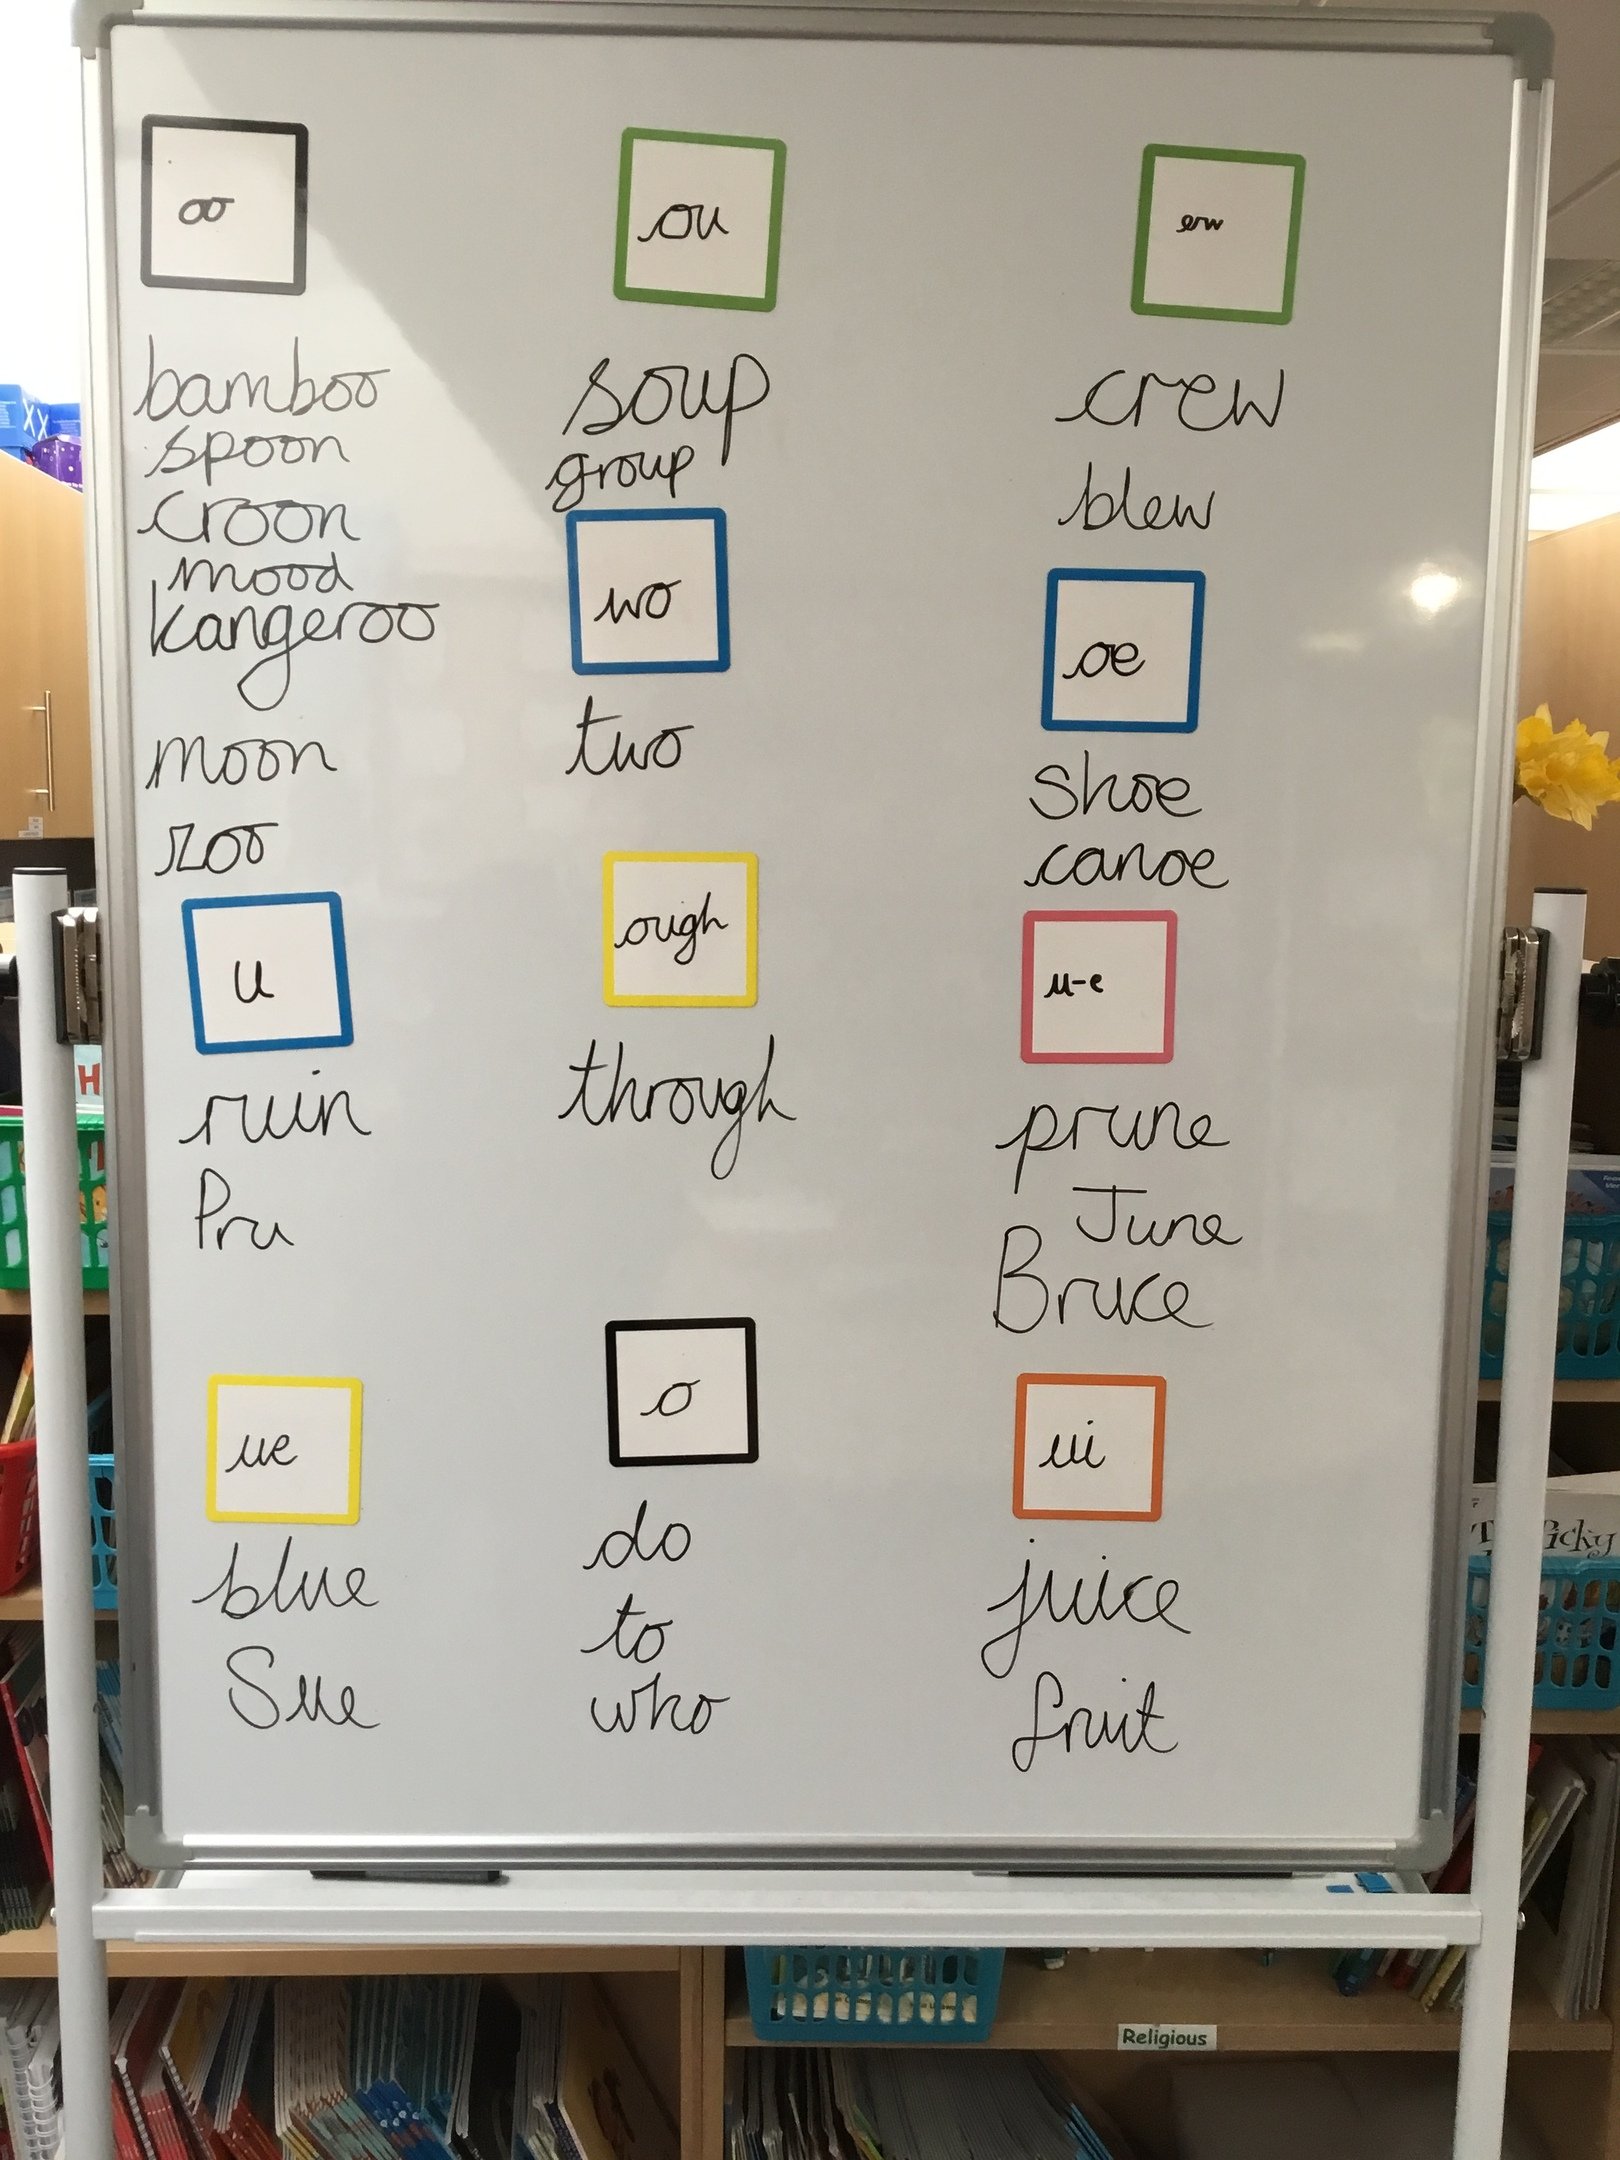 oo
bamboo
spoon
croon
mood
kangeroo
moon
zoo
u
ruin
Pru
ue
blue
Sue
ou
soup
group
wo
two
ough
through
o
do
to
who
ew
crew
blew
oe
shoe
canoe
u-e
prune
June
Bruce
ui
juice
fruit
H
XX
Religious